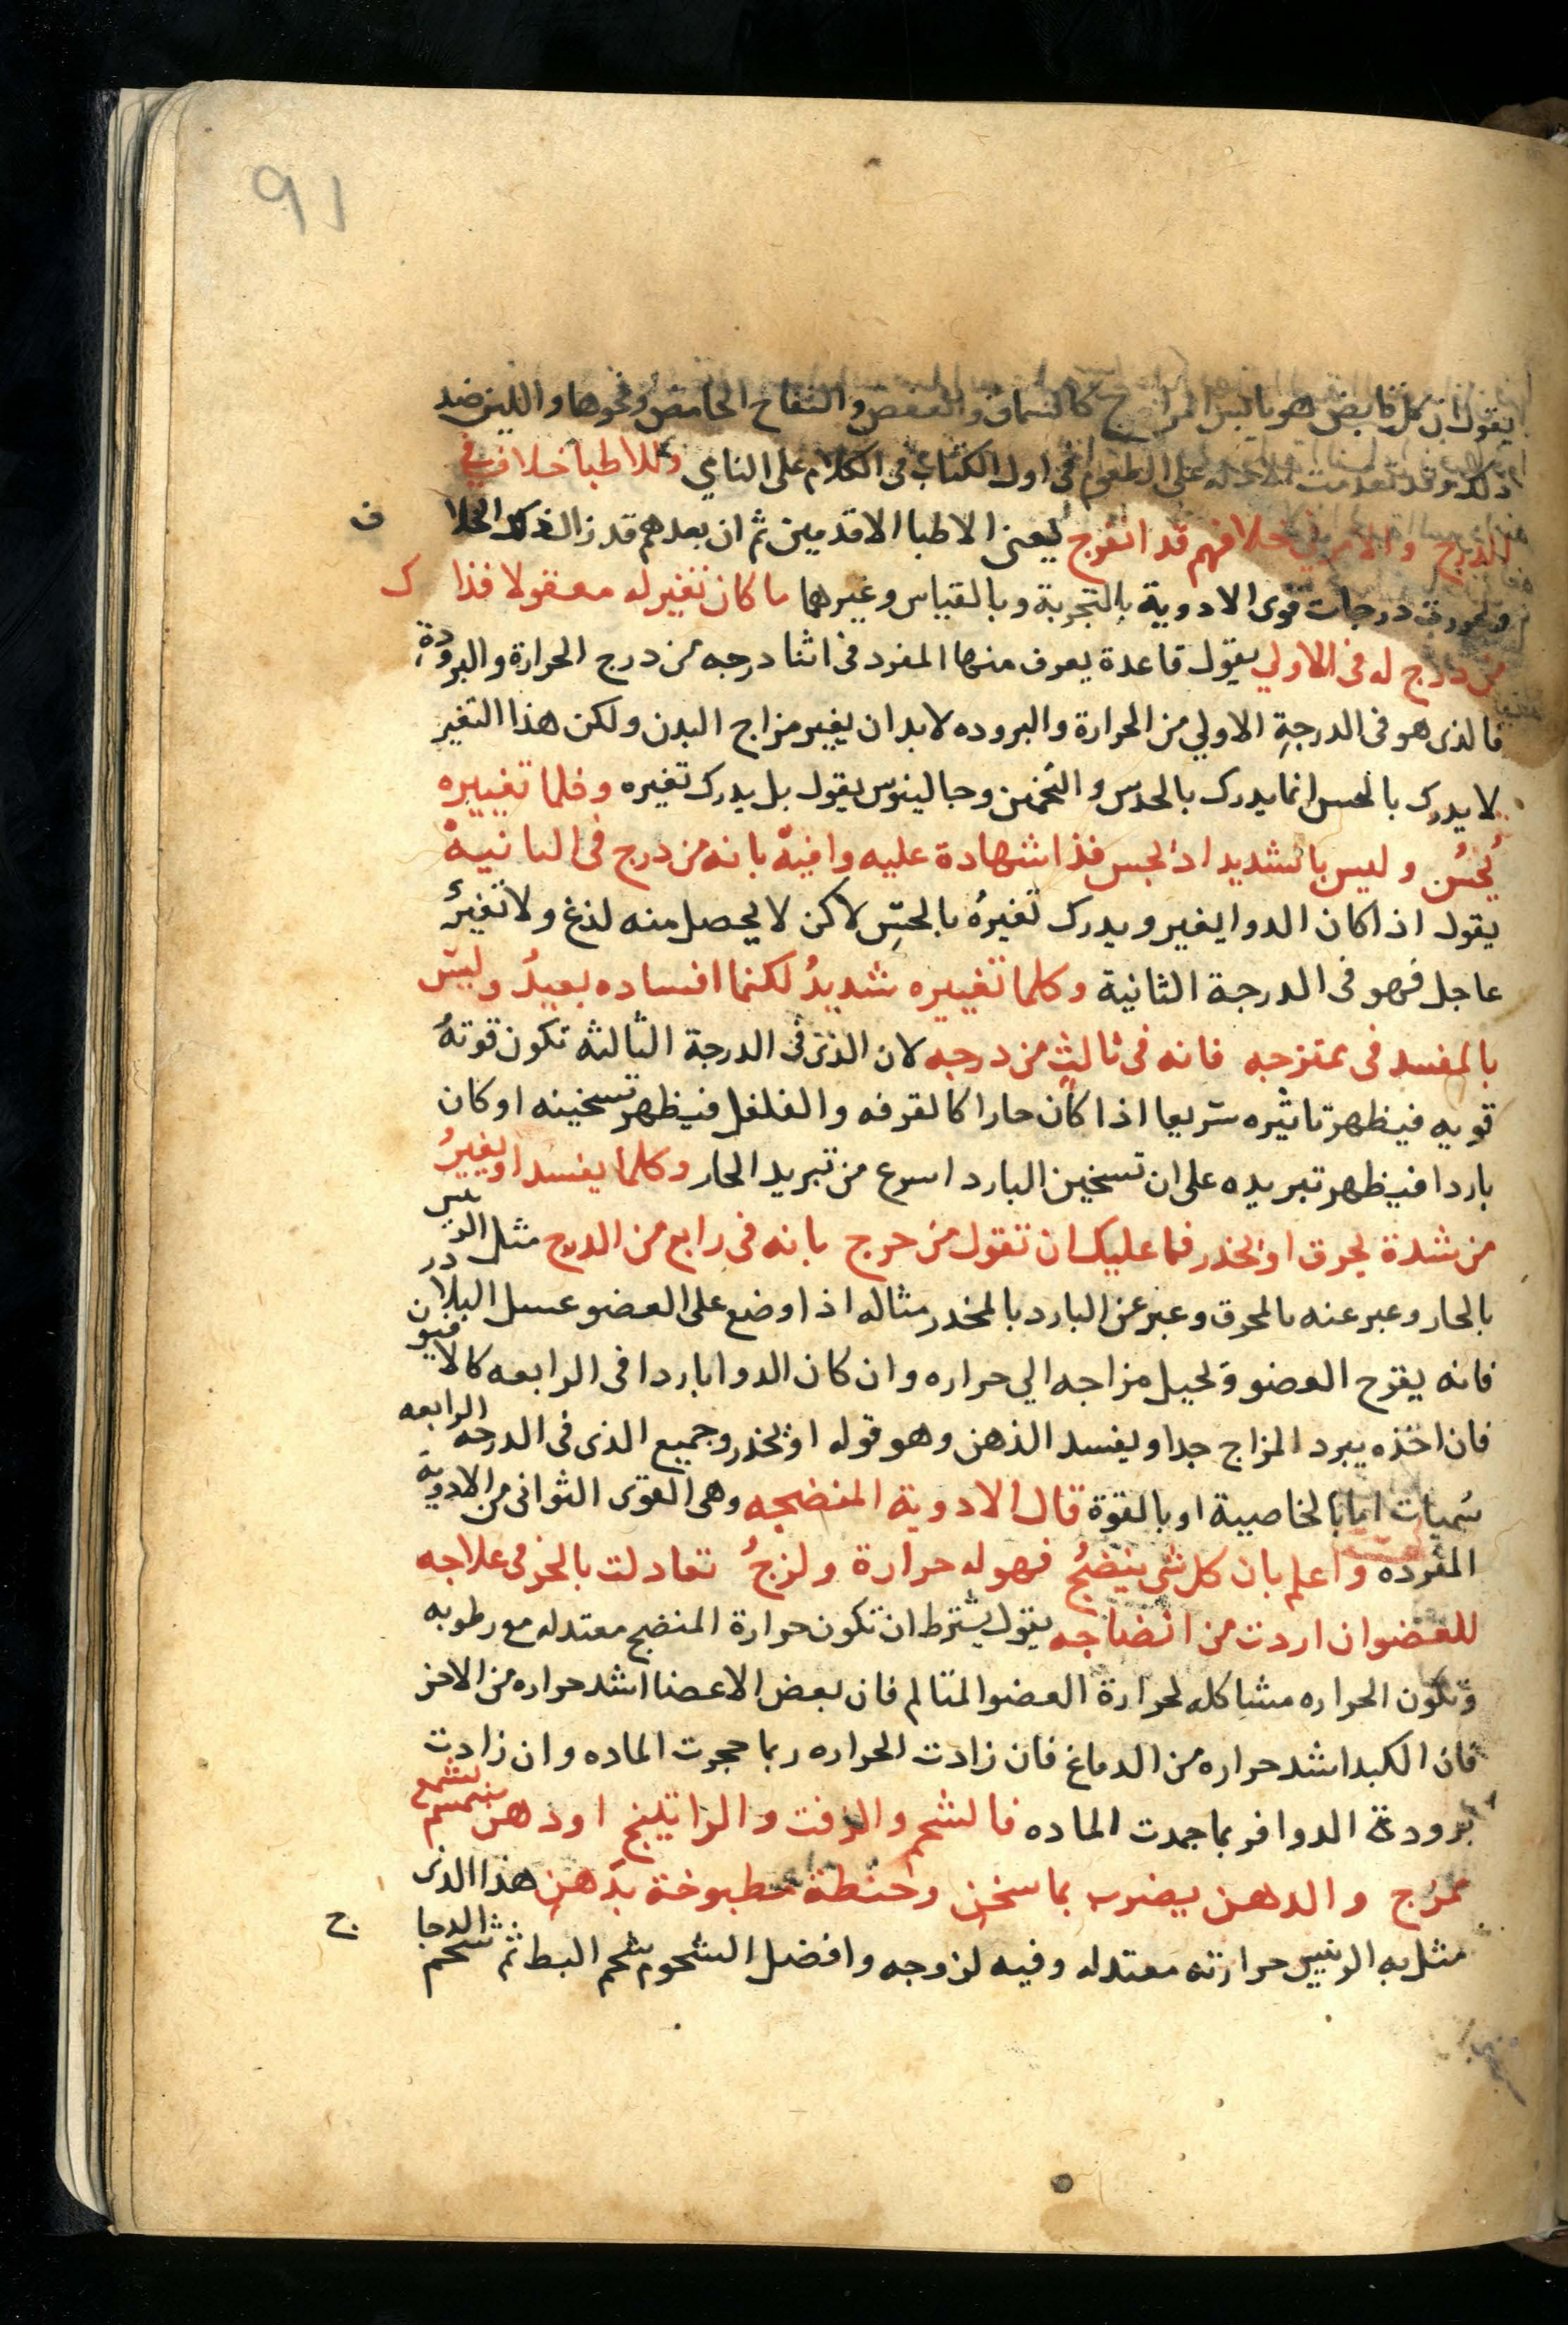 91
يقول ان كل قابض هو يابس المزاج كالسماق والعفص والتفاح الحامض ونحوها واللين ضد
ذلك وقد تقدمت الادله على الطعوم في اول الكتاب في الكلام على النامي وللاطبا خلاف في
الدرج والامر في خلافهم قد انفرج يعني الاطبا الاقدمين ثم ان بعدهم قد زال ذلك الخلا ف
وعرفت درجات قوى الادوية بالتجربة وبالقياس وغيرهما ما كان تغيرله معقولا فذا ك
من درج له في الاولي يقول قاعدة يعرف منها المفرد في اثنا درجه من درج الحرارة والبرودة
فالذى هو فى الدرجة الاولي من الحرارة والبروده لابد ان يغير مزاج البدن ولكن هذا التغير
لا يدرك بالحس انما يدرك بالحدس والتخمين وجالينوس يقول بل يدرك تغيره وكلما تغييره
يُحَسُ وليس بالشديد اذ يجس فذا شهادة عليه وافية بانه من درج فى الثانية
يقول اذا كان الدوا يغير ويدرك تغيرهُ بالحسِّ لاكن لا يحصل منه لذغ ولا تغيرٌ
عاجل فهو فى الدرجة الثانية وكلما تغييره شديدُ لكنما افساده بعيدُ وليس
بالمفسد فى ممتزجه فانه فى ثالثٍ من درجه لان الذى فى الدرجة الثالثه تكون قوتهُ
قويه فيظهر تاثيره سريعا اذا كان حارا كالقرفه والفلفل فيظهر تسخينه او كان
باردا فيظهر تبريده على ان تسخين البارد اسرع من تبريد الحار وكلما يفسد او يغيرُ
من شدة يحرق او يخدر فما عليك ان تقول من حرج بانه فى رابع من الدرج مثل الريس
بالحار وعبر عنه بالمحرق وعبر عن البارد بالمخدر مثاله اذا وضع على العضو عسل البلادر
فانه يقرح العضو ويحيل مزاجه الي حراره وان كان الدوا باردا فى الرابعه كالافيون
فان اخذه يبرد المزاج جدا ويفسد الذهن وهو قوله او يخدر وجميع الذى فى الدرجه الرابعه
سُميات اما بالخاصية او بالقوة قال الادوية المنضجه وهى القوى الثوانى من الادوية
المفرده واعلم بان كل شى ينضجُ فهو له حرارة ولزجُ تعادلت بالخرمى علاجه
للعضو ان اردت من انضاجه يقول يشترط ان تكون حرارة المنضج معتدله مع رطوبه
وتكون الحراره مشاكله لحرارة العضو المتالم فان بعض الاعضا اشد حراره من الاخر
فان الكبد اشد حراره من الدماغ فان زادت الحراره ربما حجرت الماده وان زادت
برودة الدوا فربما جمدت الماده فالشحم والزفت والراتينج او دهن بشمع
يمزج والدهن يضرب بما سخن وحنطة مطبوخة بدهن هذا الذى
مثل به الريس حرارته معتدله وفيه لزوجه وافضل الشحوم شحم البط ثم شحم الدجا ج